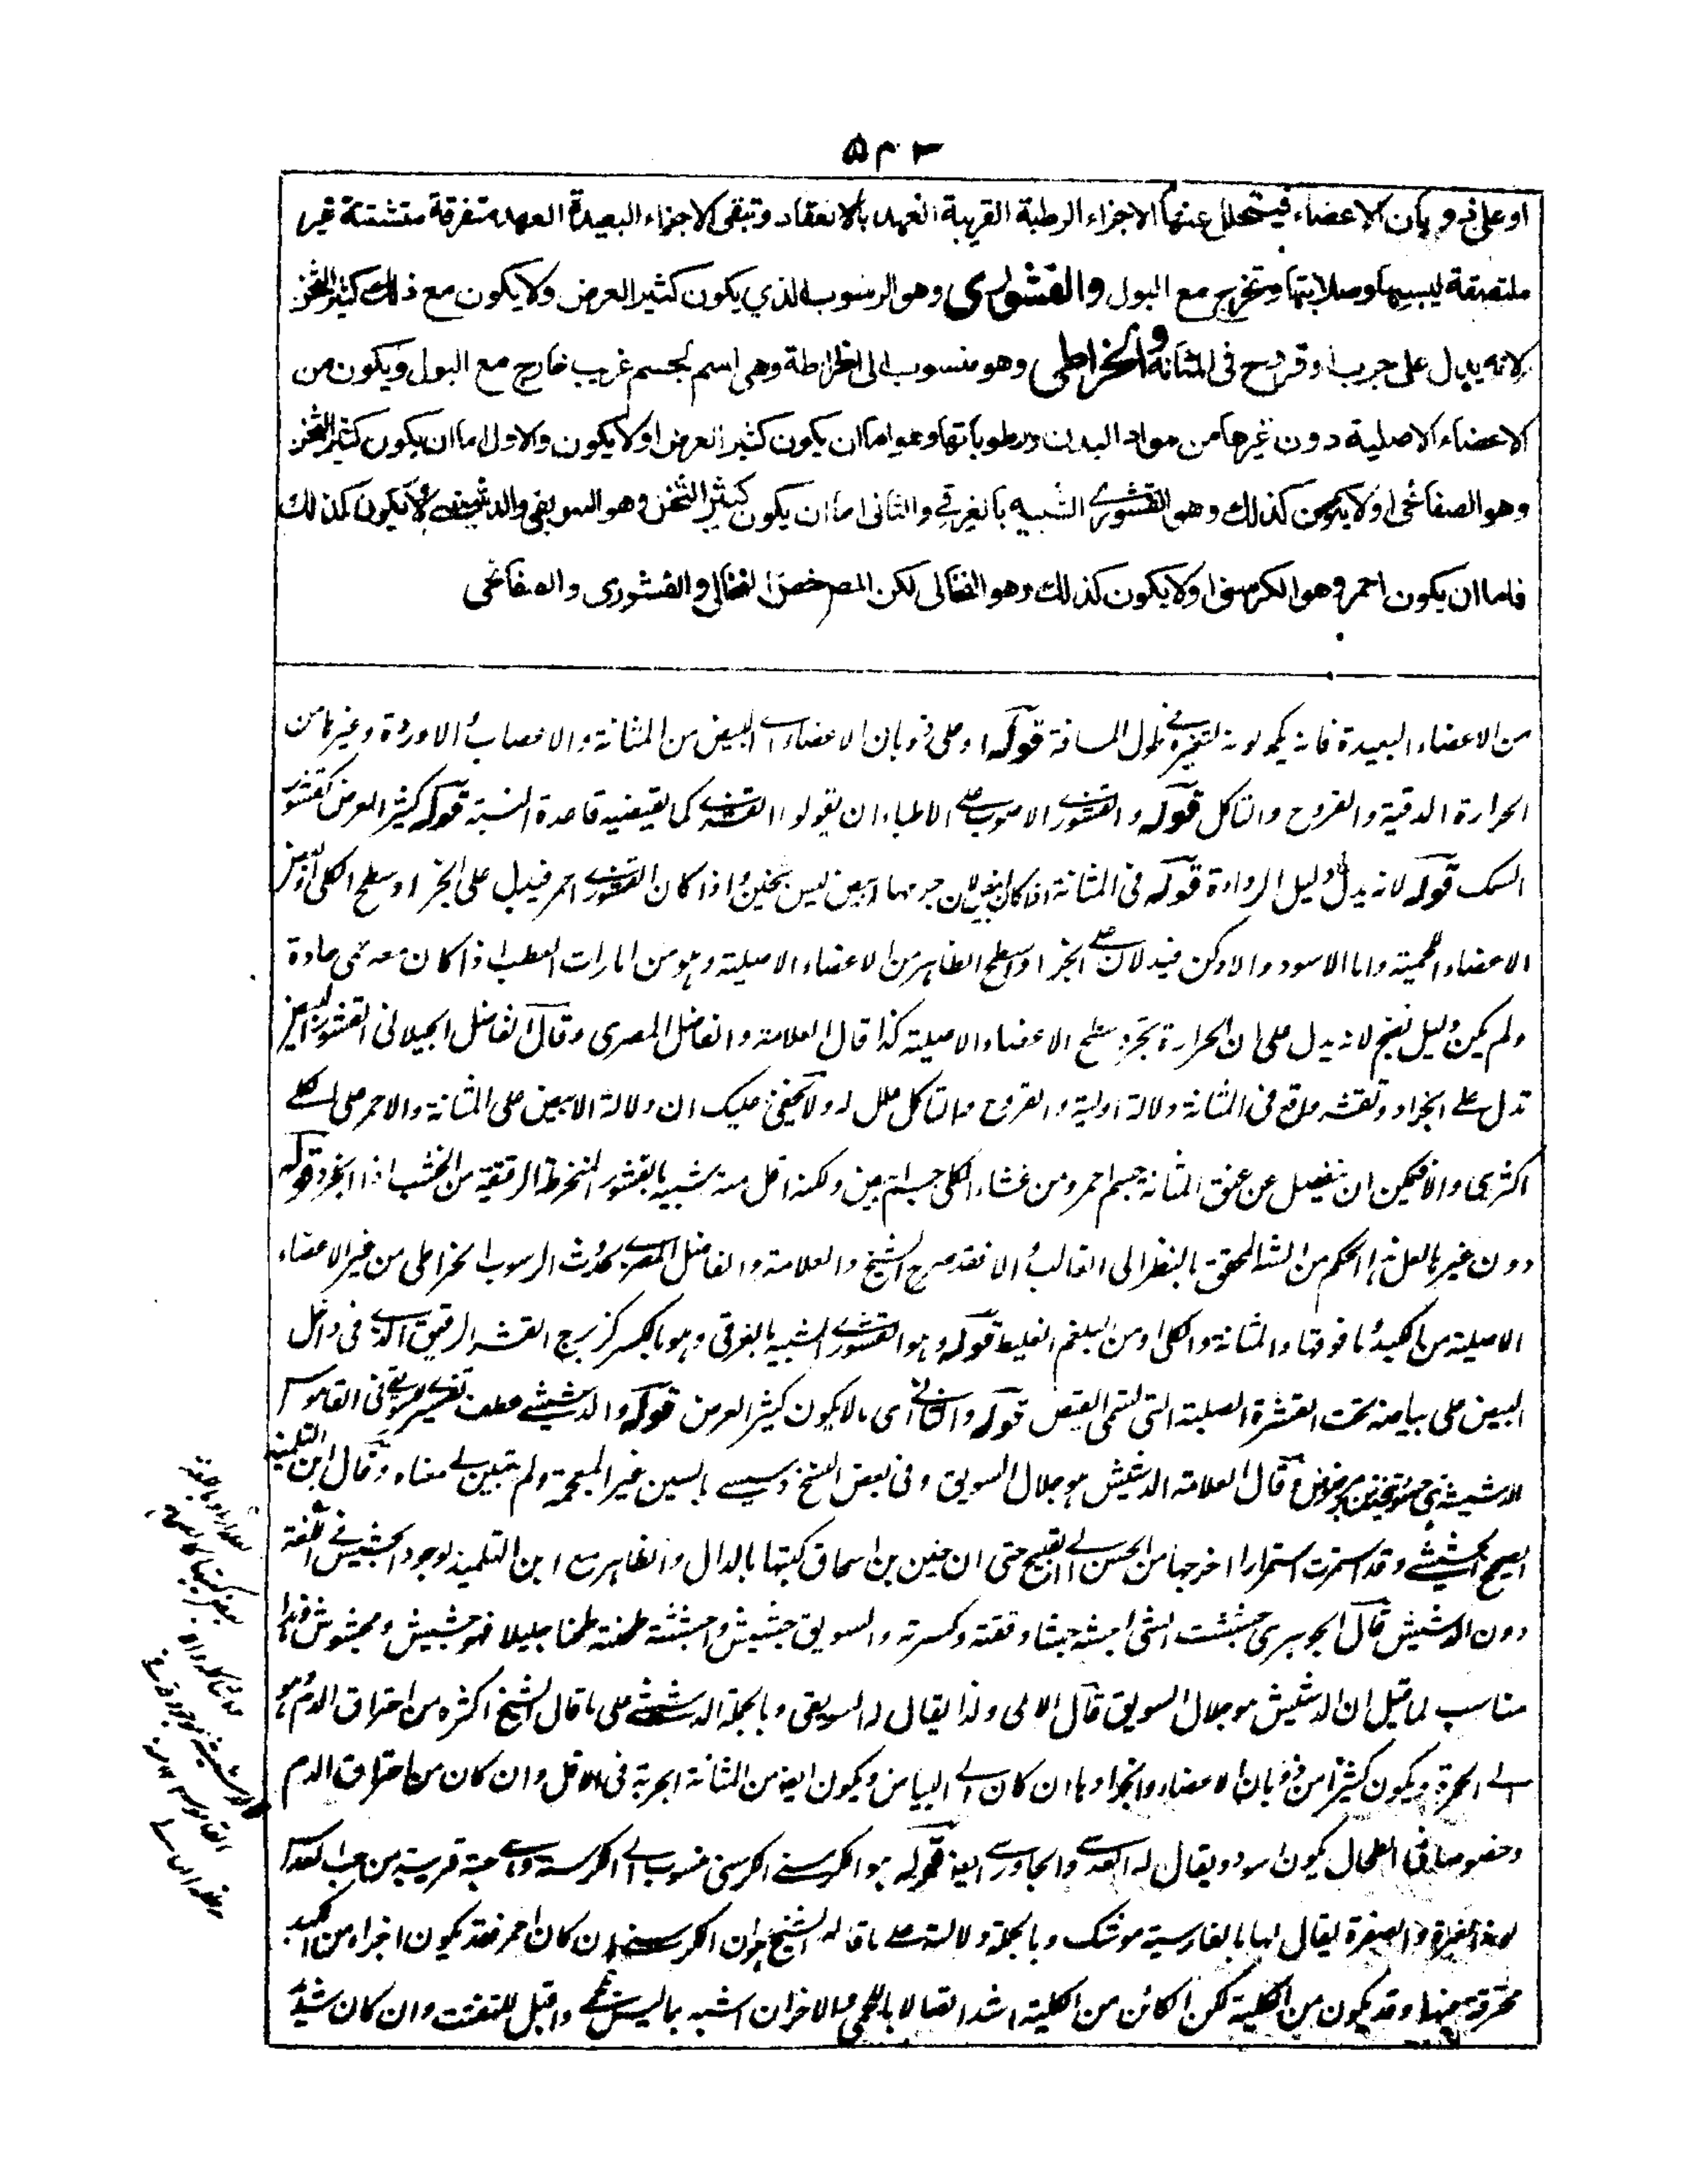 او على ذوبان الاعضاء فيتحلل عنها الاجزاء الرطبة القريبة العهد بالانعقاد وتبقى الاجزاء البعيدة العهد متفرقة متشتتة غير
ملتصقة ليبسها وصلابتها وتخرج مع البول والقشوری وهو الرسوب الذي يكون كثير العرض ولا يكون مع ذلك كثير الثخن
لانه يدل على جرب او قروح فى المثانة والخراطی وهو منسوب الى الخراطة وهى اسم لجسم غريب خارج مع البول ويكون من
الاعضاء الاصلية دون غيرها من مواد البدن ورطوباتها وهو اما ان يكون كثير العرض او لا يكون والاول اما ان يكون كثير الثخن
وهو الصفائحى او لا يكون كذلك وهو القشورے الشبيه بالغرقے والثانى اما ان يكون كثير الثخن وهو السويقى والدشيشے او لا يكون كذلك
فاما ان يكون احمر وهو الكرسنى او لا يكون كذلك وهو النخالى لكن المص خص النخالى والقشورى والصفائحى
من الاعضاء البعيدة فانه لونه لتغيره فے طول المسافة قوله او على ذوبان الاعضاء اے البيض من المثانة والاعصاب والاوردة وغيرها من
الحرارة الدقية والقروح والتاكل قوله والقشورے الاصوب على الاطباء ان يقولوا القشرے كما يقتضيه قاعدة النسبة قوله كثير العرض كقشور
السمك قوله لانه يدل دليل الرداءة قوله فى المثانة اذا كان ابيض لان جرمها ابيض ليس بثخين واذا كان القشورے احمر فيدل على انجراد سطح الكلى او غيره من
الاعضاء اللحمية واما الاسود والادكن فيدلان على انجراد سطح الظاهر من الاعضاء الاصلية وهو من امارات العطب اذا كان معه حمى حادة
ولم يكن دليل نضج لانه يدل على ان الحرارة تجرد سطح الاعضاء الاصلية كذا قال العلامة والفاضل المصرى وقال الفاضل الجيلانى القشور البيض
تدل على انجراد وتقشر واقع فى المثانة دلالة اولية والقروح والتاكل علل له ولا يخفى عليك ان دلالة الابيض على المثانة والاحمر على الكلے
اكثرى والا فيمكن ان ينفصل عن عنق المثانة جسم احمر ومن غشاء الكلى جسم ابيض ولكنه اقل منه شبيه بالقشور المنخرطة الرقيقة من الخشب اذا انجرد قوله
دون غيرها لعل هذا الحكم من الشارح المحقق بالنظر الى الغالب والا فقد صرح الشيخ والعلامة والفاضل المصرے بحدوث الرسوب الخراطى من غير الاعضاء
الاصلية من الكبد وما فوقها والمثانة والكلى او من البلغم الغليظ قوله وهو القشورے الشبيه بالغرقى وهو بالكسر كزبرج القشر الرقيق الذے فى داخل
البيض على بياضه تحت القشرة الصلبة التى تسمى القيض قوله والثانے اى ما لا يكون كثير العرض قوله والدشيشے عطف تفسيرے للسويقے فى القاموس
الدشيشة وقال العلامة الدشيش هو جلال السويق وفى بعض النسخ دسيسے بالسين غير المعجمة ولم يتبين لے معناه وقال ابن التلميذ
الصحيح الجشيشے وقد استمرت استمرارا اخرجها من الحسن الے القبيح حتى ان حنين بن اسحاق كتبها بالدال والظاهر مع ابن التلميذ لوجود الجشيش فے اللغة
دون الدشيش قال الجوهرى جششت الشئ اجشه جشا دققته وكسرته والسويق جشيش واجششته طحنته طحنا جليلا فهو جشيش ومجشوش فهذا
مناسب لما قيل ان الدشيش هو جلال السويق قال الاملى ولذا يقال له السويقى وبالجملة الدشيشے على ما قال الشيخ اكثره من احتراق الدم وهو
الے الحمرة ويكون كثيرا من ذوبان الاعضاء وانجرادها ان كان الے البياض ويكون ايضا من المثانة الجربة فى الاقل وان كان من احتراق الدم
وخصوصا فى الطحال يكون اسود ويقال له والجاورسے ايضا قوله هو الكرسنے الكرسنى منسوب الے الكرسنة وهے حبة قريبة من حب العدس
لونها الغبرة والصفرة يقال لها بالفارسية موشنك وبالجملة ودلالته على ما قاله الشيخ هو ان الكرسنے ان كان احمر فقد يكون اجزاء من الكبد
محترقة منها وقد يكون من الكلية لكن الكائن من الكلية اشد اتصالا باللحمى والاخران اشبه بما ليس بلحمے واقبل للتفتت وان كان شديد